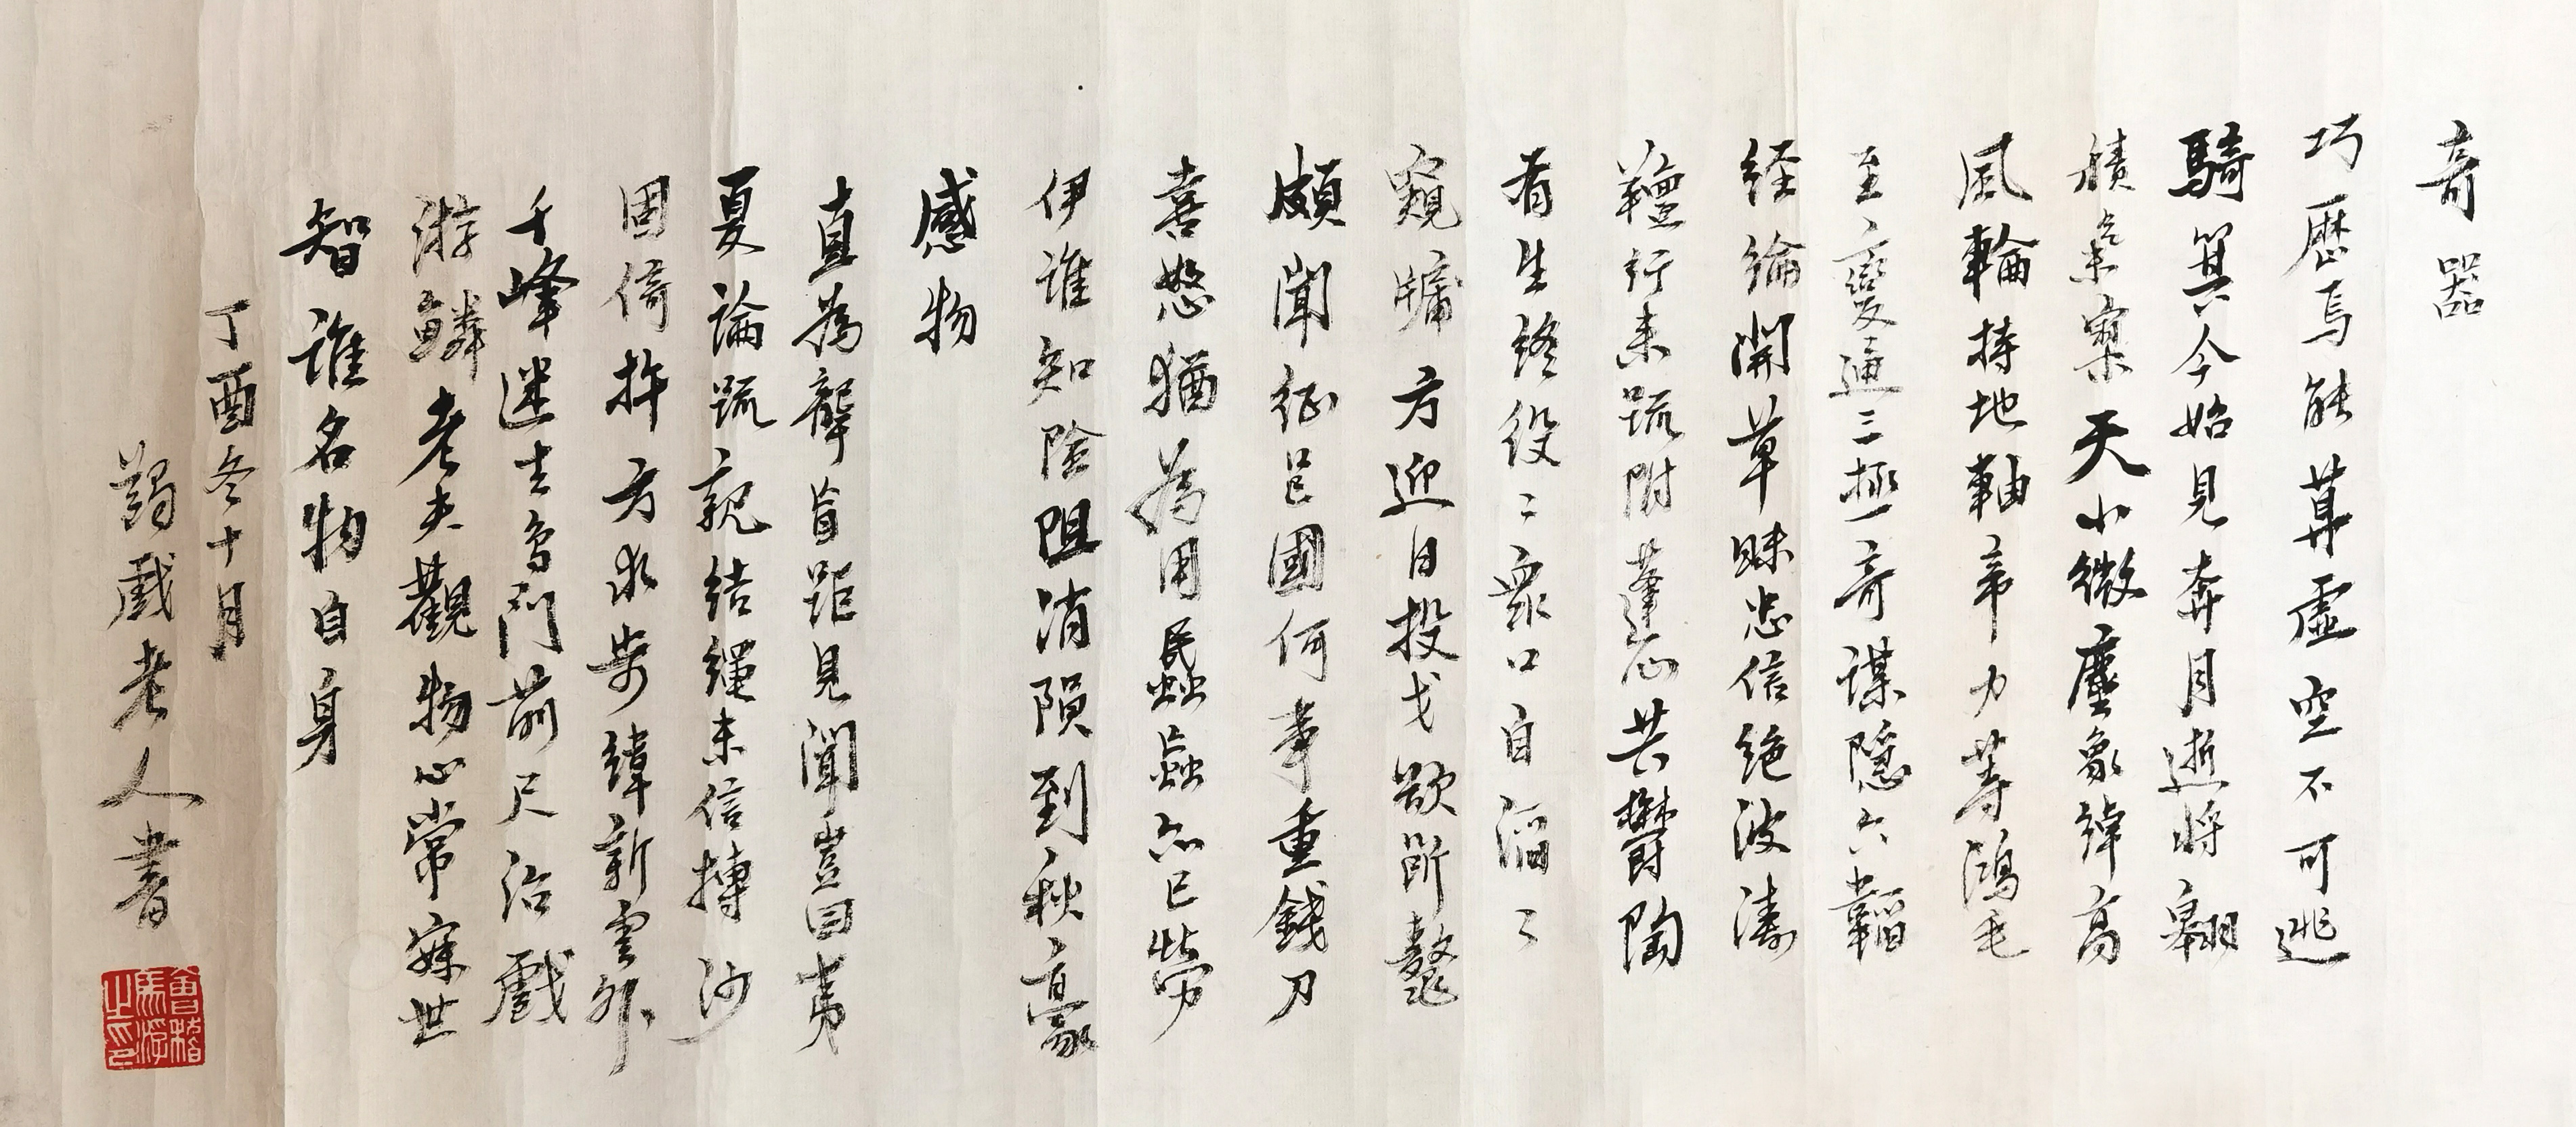 奇器
巧曆焉能算虛空不可逃
騎箕今始見奔月逝將翱
積氣寥天小微塵象緯高
風輪持地軸帝力等鴻毛
至變通三極奇謀隱六韜
经綸開草昧忠信絶波濤
韁行未疏附蓬心共鬱陶
看生終役〻衆口自滔〻
窺牖方迎日投戈欲斷鼇
頗聞征邑國何事重錢刀
喜怒猶為用民蟲蟲亦已勞
伊誰知險阻消隕到秋豪
感物
直為聾盲距見聞豈因夷
夏論疏親結繩未信摶沙
固倚杵方求步緯新雲外
千峰迷去鳥門前尺沼戲
游鱗老夫觀物心常寐世
智誰名物自身
丁酉冬十月
蠲戲老人書